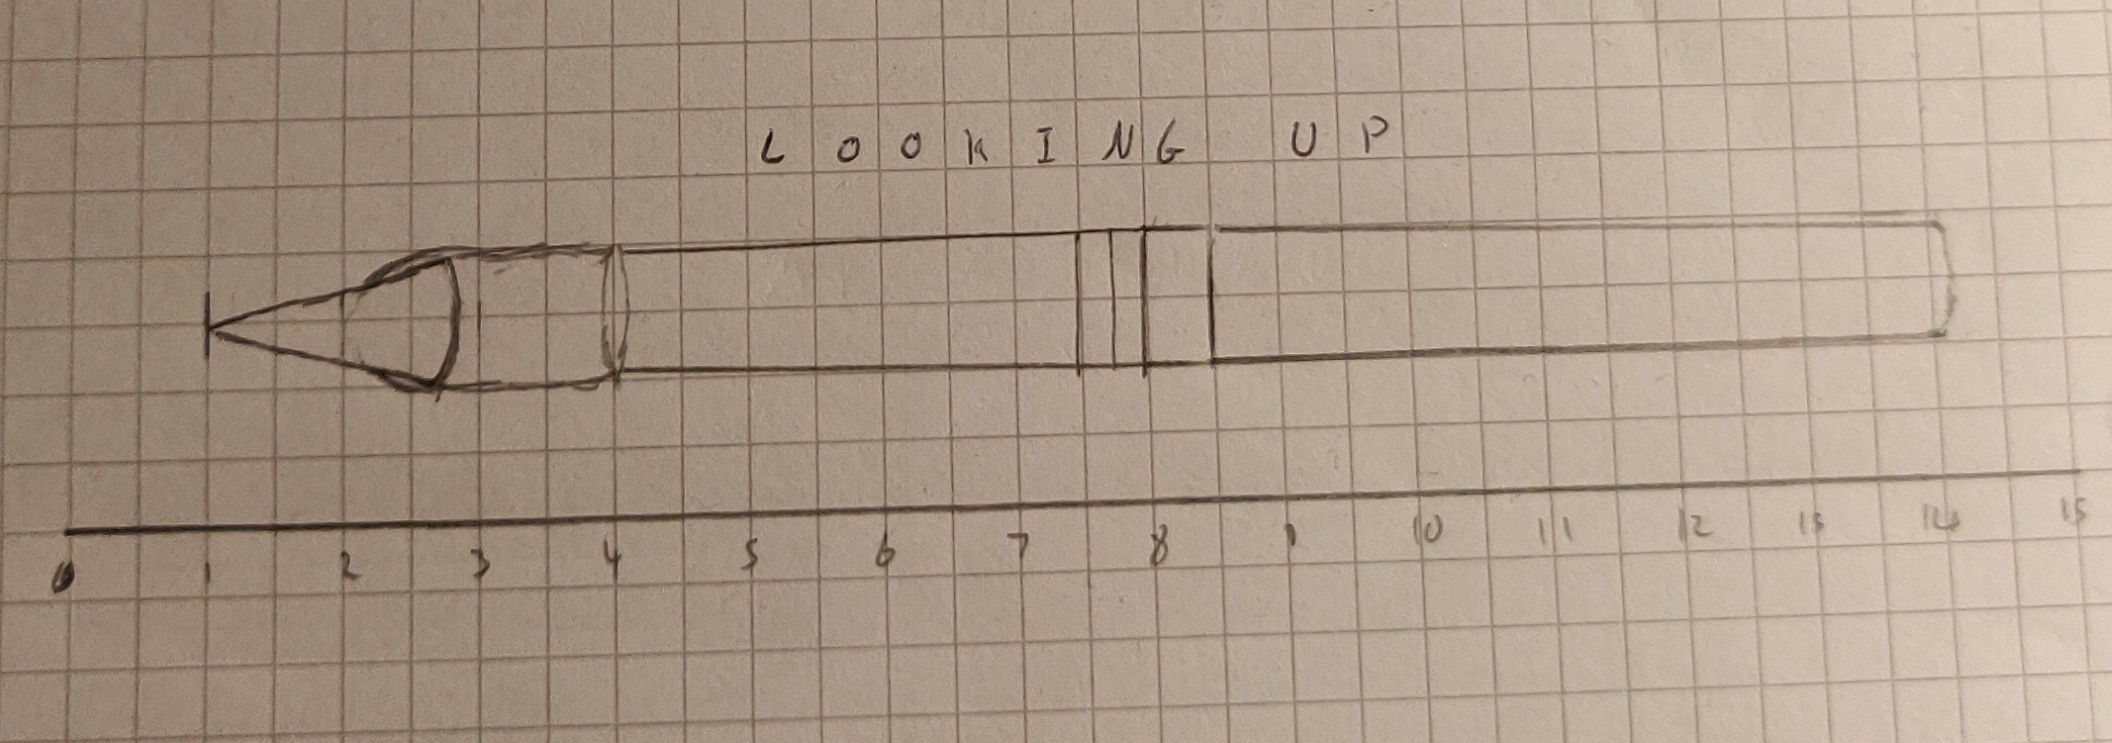 LOOKING UP
0 1 2 3 4 5 6 7 8 9 10 11 12 13 14 15